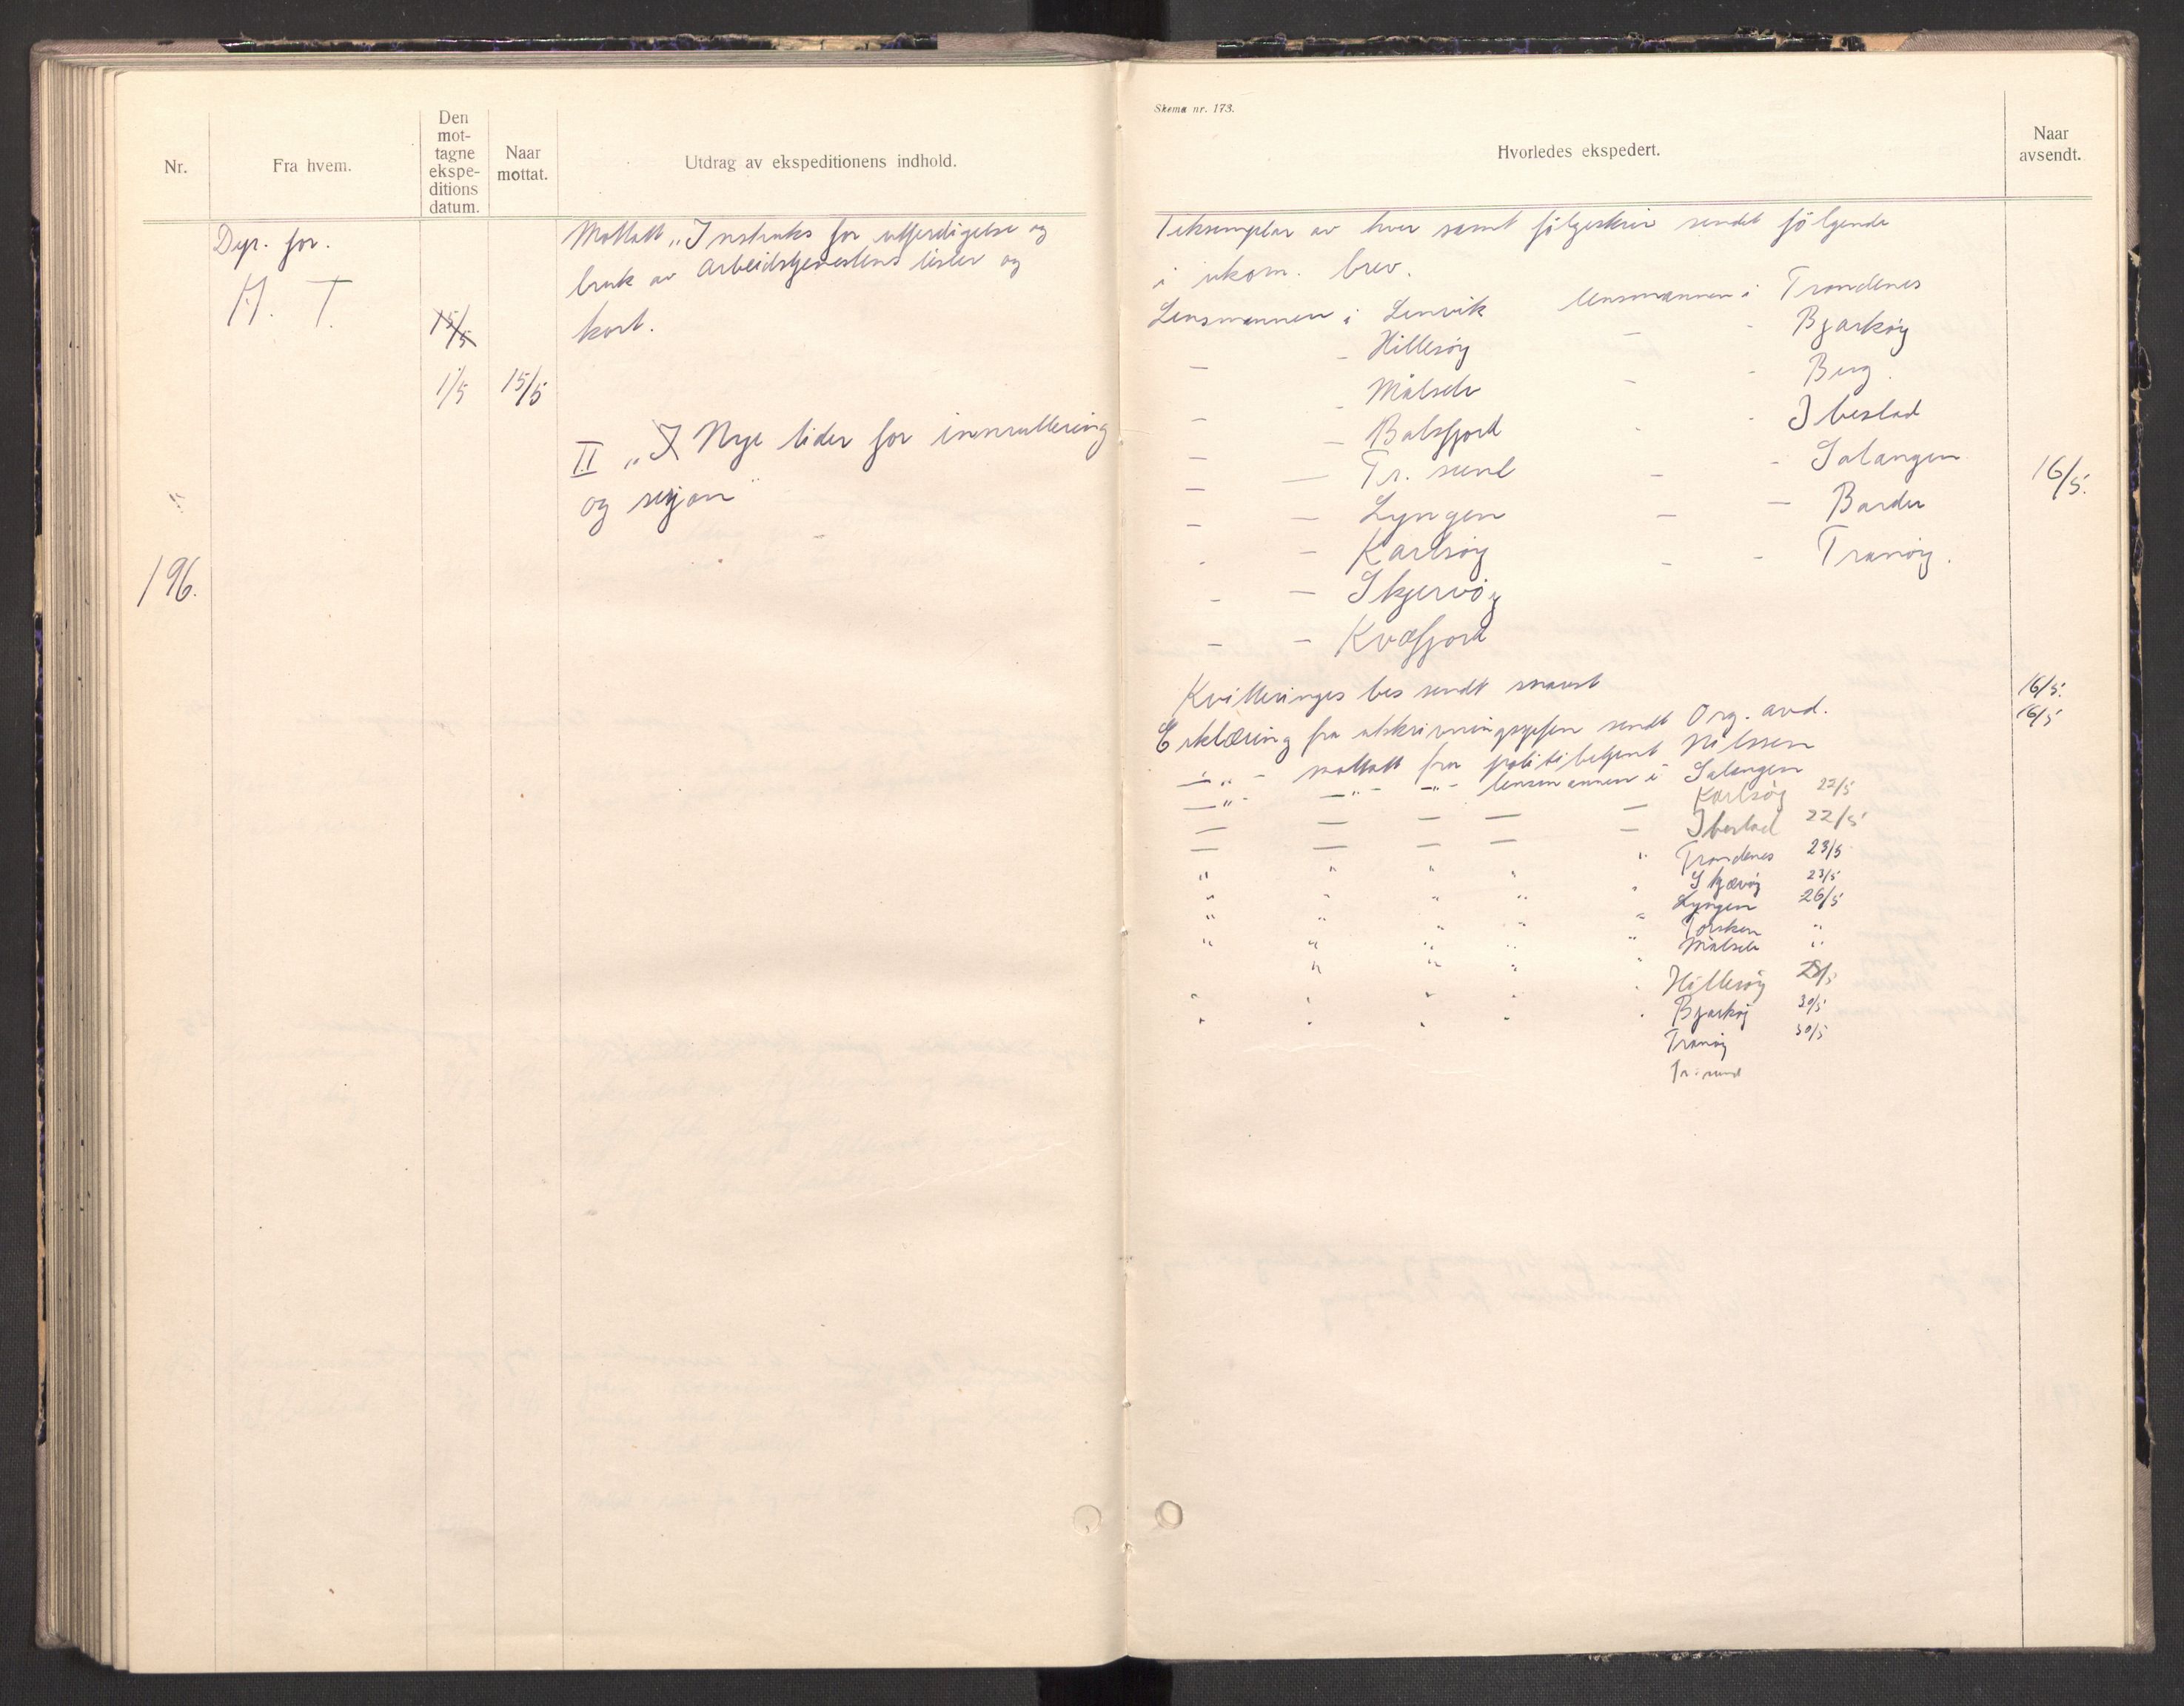 Nr.
Fra hvem.
Den
mot-
tagne
ekspe-
ditions
datum.
Naar
mottat.
Utdrag av ekspeditionens indhold.
Dep. for.
A. T.
15/5
1/5 15/5
196.
Mottatt „Instruks for utferdigelse og
bruk av Arbeidstjenestens lister og
kort.
II „I Nye tider for innrullering
og sesjon"
Skema nr. 173.
Hvorledes ekspedert.
Naar
avsendt.
1 eksemplar av hver samt følgeskriv sendt følgende
i rekom. brev.
Lensmannen i Lenvik lensmannen i Trondenes
- Hillesøy - - Bjarkøy
- - Målselv - - Berg.
- - Balsfjord - - Ibestad
- - Tr. sund - - Salangen 16/5.
- - Lyngen - - Bardu
- - Karlsøy - - Tranøy.
- - Skjervøy
- - Kvæfjord
Kvitteringes bes sendt snarest 16/5.
Erklæring fra utskrivningssjefen sendt Org. avd. 16/5
— " - mottatt fra politibetjent Nilssen
— " - — " - — " - lensmannen i Salangen
— — — — — Karlsøy 22/5
— — — — — Ibestad 22/5
" " " " " Trondenes 23/5
" " " " " Skjervøy 23/5
" " " " " Lyngen 26/5
" " " " " Torsken "
" " " " Målselv "
" " " " " Hillesøy
" " " " " Bjarkøy 30/5
Tranøy 30/5
Tr. sund